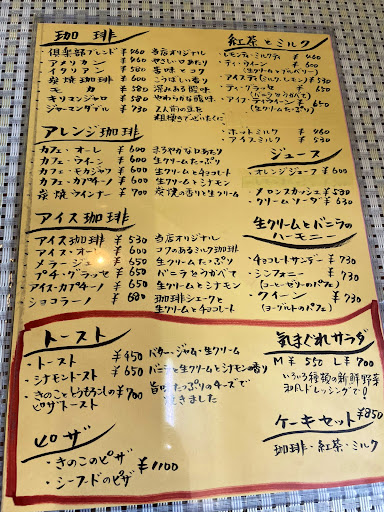 珈琲
・倶楽部ブレンド ¥460 当店オリジナル
・アメリカン ¥460 やさしい口あたり
・イタリアン ¥580 苦味とコク
・炭焼珈琲 ¥600 こうばしい香り
・モカ ¥580 深みある酸味
・キリマンジャロ ¥580 やわらかな酸味
・ジャーマンダブル ¥730 2人前の豆
粗挽きでぜいたくに
アレンジ珈琲
・カフェ・オーレ ¥600 まろやかな口あたり
・カフェ・ウイーン ¥600 生クリームたっぷり
・カフェ・モカジャバ ¥600 生クリームとチョコレート
・カフェ・カプチーノ ¥600 生クリームとシナモン
・炭焼ウインナー ¥700 炭焼の香りと生クリーム
アイス珈琲
・アイス珈琲 ¥530 当店オリジナル
・アイス・オーレ ¥600 コクのあるミルク珈琲
・メラージュ ¥650 生クリームたっぷり
・プチ・グラッセ ¥650 バニラをうかべて
・アイス・カプチーノ ¥650 生クリームとシナモン
・ショコラーノ ¥680 珈琲シェークと
生クリームとチョコレート
紅茶とミルク
・レモンティ・ミルクティ ¥460
・ティ・ウイーン ¥600
(生クリームとブルーベリー)
・アイスティ(ミルク・レモン) ¥530
・ティ・グラッセ ¥650
(バニラをうかべて)
・アイス・ティ・ウイーン ¥650
(生クリームたっぷり)
・ホットミルク ¥460
・アイスミルク ¥530
ジュース
・オレンジジュース ¥600
・メロンスカッシュ ¥580
・クリームソーダ ¥630
生クリームとバニラの
ハーモニー
・チョコレートサンデー ¥730
・シンフォニー ¥730
(コーヒーゼリーのパフェ)
・クイーン ¥730
(ヨーグルトのパフェ)
トースト
・トースト ¥450 バター・ジャム・生クリーム
・シナモントースト ¥650 バニラと生クリームとシナモンの香り
・きのこととうもろこしの ¥700 旨味たっぷりのチーズで
ピザトースト 焼きました
ピザ
・きのこのピザ ¥1100
・シーフードのピザ
気まぐれサラダ
M ¥550 L ¥700
いろいろ種類の新鮮野菜
和風ドレッシングで!
ケーキセット ¥850
珈琲・紅茶・ミルク